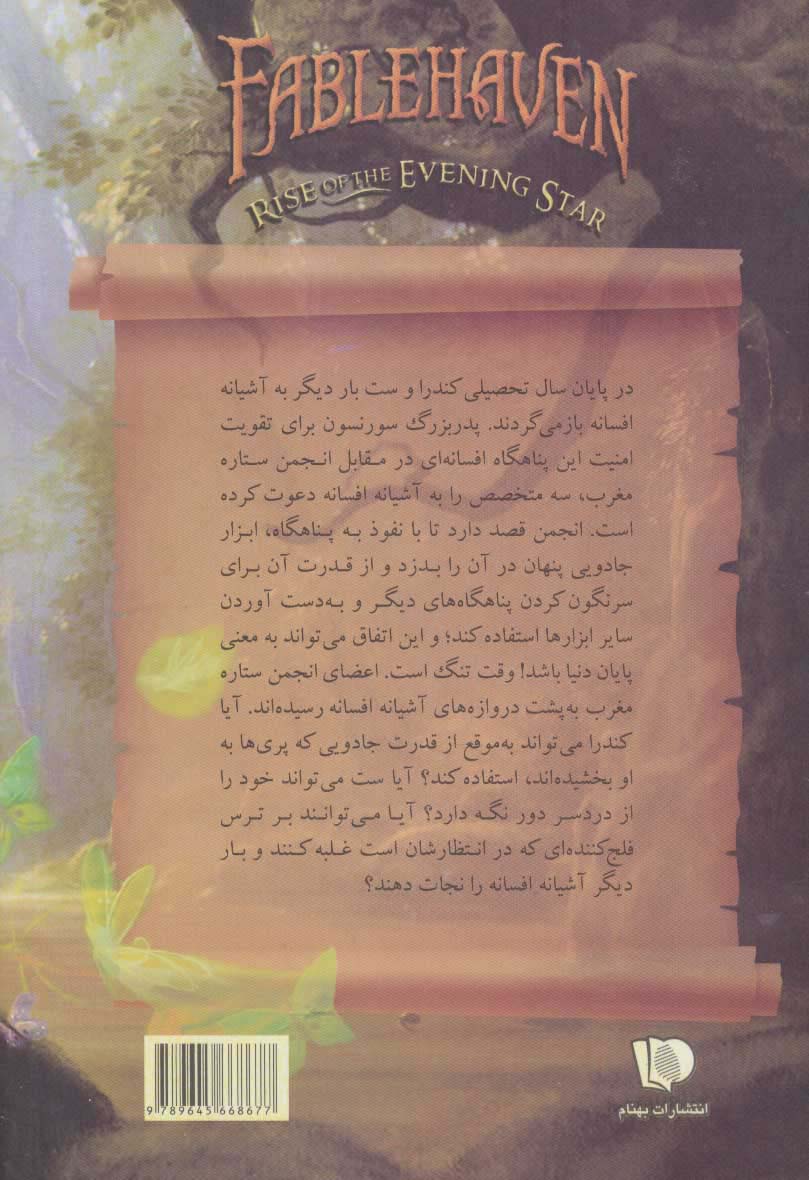 FABLEHAVEN
RISE OF THE EVENING STAR
در پایان سال تحصیلی کندرا و ست بار دیگر به آشیانه
افسانه بازمی‌گردند. پدربزرگ سورنسون برای تقویت
امنیت این پناهگاه افسانه‌ای در مقابل انجمن ستاره
مغرب، سه متخصص را به آشیانه افسانه دعوت کرده
است. انجمن قصد دارد تا با نفوذ به پناهگاه، ابزار
جادویی پنهان در آن را بدزد و از قدرت آن برای
سرنگون کردن پناهگاه‌های دیگر و به‌دست آوردن
سایر ابزارها استفاده کند؛ و این اتفاق می‌تواند به معنی
پایان دنیا باشد! وقت تنگ است. اعضای انجمن ستاره
مغرب به‌پشت دروازه‌های آشیانه افسانه رسیده‌اند. آیا
کندرا می‌تواند به‌موقع از قدرت جادویی که پری‌ها به
او بخشیده‌اند، استفاده کند؟ آیا ست می‌تواند خود را
از دردسر دور نگه دارد؟ آیا می‌توانند بر ترس
فلج‌کننده‌ای که در انتظارشان است غلبه کنند و بار
دیگر آشیانه افسانه را نجات دهند؟
9 789645 668677
انتشارات بهنام